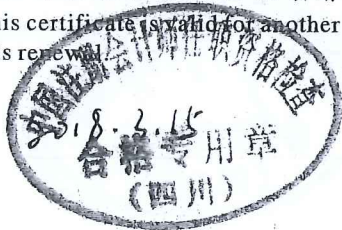 his certificate is valid for another
s renewal.
中国注册会计师任职资格检查
8.3.15
合格专用章
(四川)